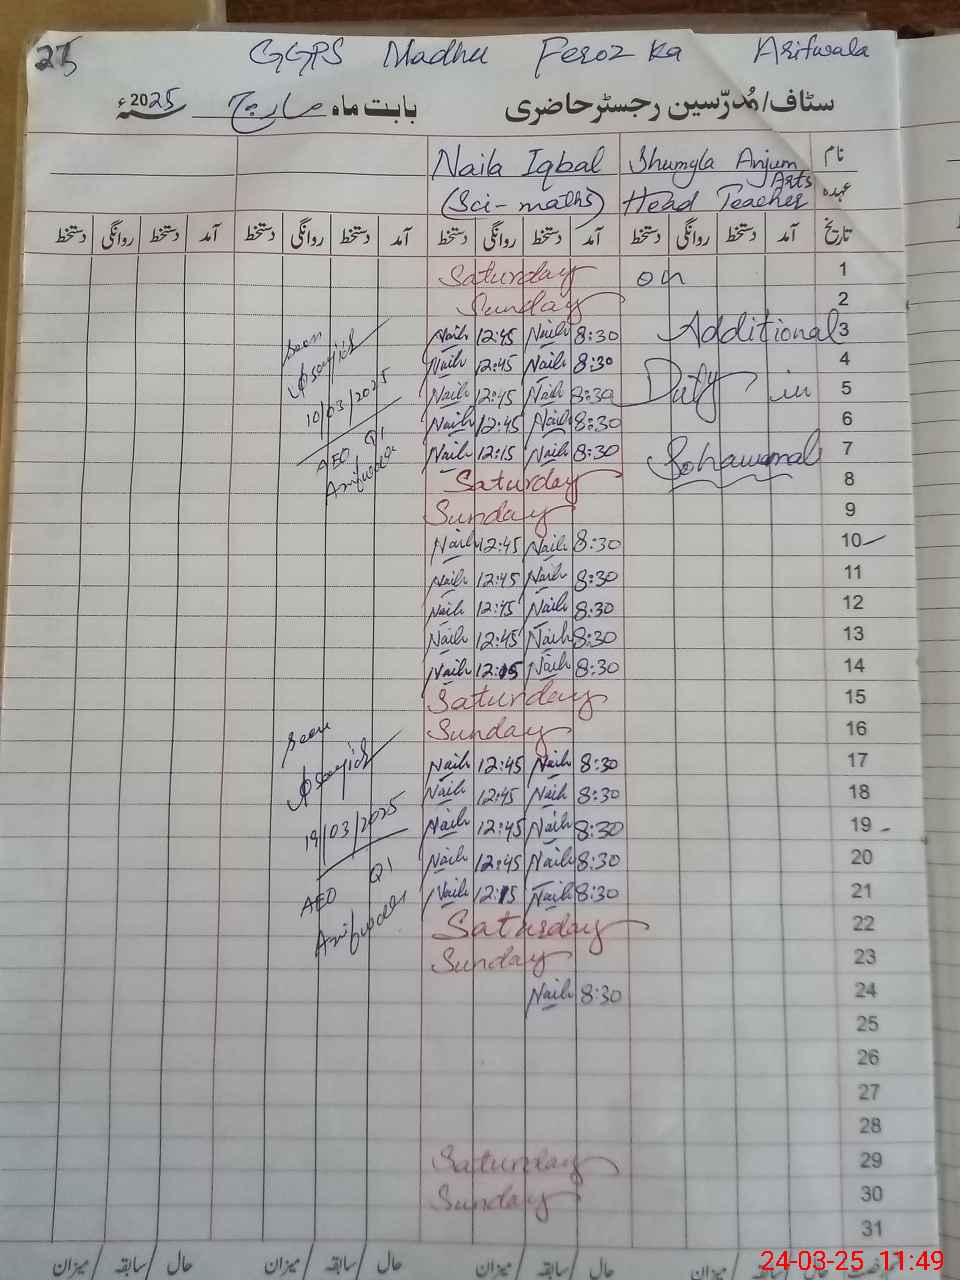 25 GGPS Madhu Feroz Ka Arifwala
سٹاف/مُدرّسین رجسٹر حاضری بابت ماہ مارچ 2025ء
نام Shumyla Anjum Naila Iqbal
عہدہ Arts Head Teacher (Sci-maths)
تاریخ آمد دستخط روانگی دستخط آمد دستخط روانگی دستخط آمد دستخط روانگی دستخط آمد دستخط روانگی دستخط
Saturday on 1
Sunday 2
Naila 12:45 Naila 8:30 Additional 3
Naila 12:45 Naila 8:30 4
Naila 12:45 Naila 8:30 Duty in 5
Naila 12:45 Naila 8:30 6
Naila 12:15 Naila 8:30 7
Saturday 8
Sunday 9
Naila 12:45 Naila 8:30 10
Naila 12:45 Naila 8:30 11
Naila 12:45 Naila 8:30 12
Naila 12:45 Naila 8:30 13
Naila 12:15 Naila 8:30 14
Saturday 15
Sunday 16
Naila 12:45 Naila 8:30 17
Naila 12:45 Naila 8:30 18
Naila 12:45 Naila 8:30 19
Naila 12:45 Naila 8:30 20
Naila 12:15 Naila 8:30 21
Saturday 22
Sunday 23
Naila 8:30 24
25
26
27
28
Saturday 29
Sunday 30
31
Seen
10/03/2025
AEO
Arifwala
Seen
19/03/2025
AEO
Arifwala
حال / سابقہ / میزان حال / سابقہ / میزان حال / سابقہ / میزان
24-03-25 11:49